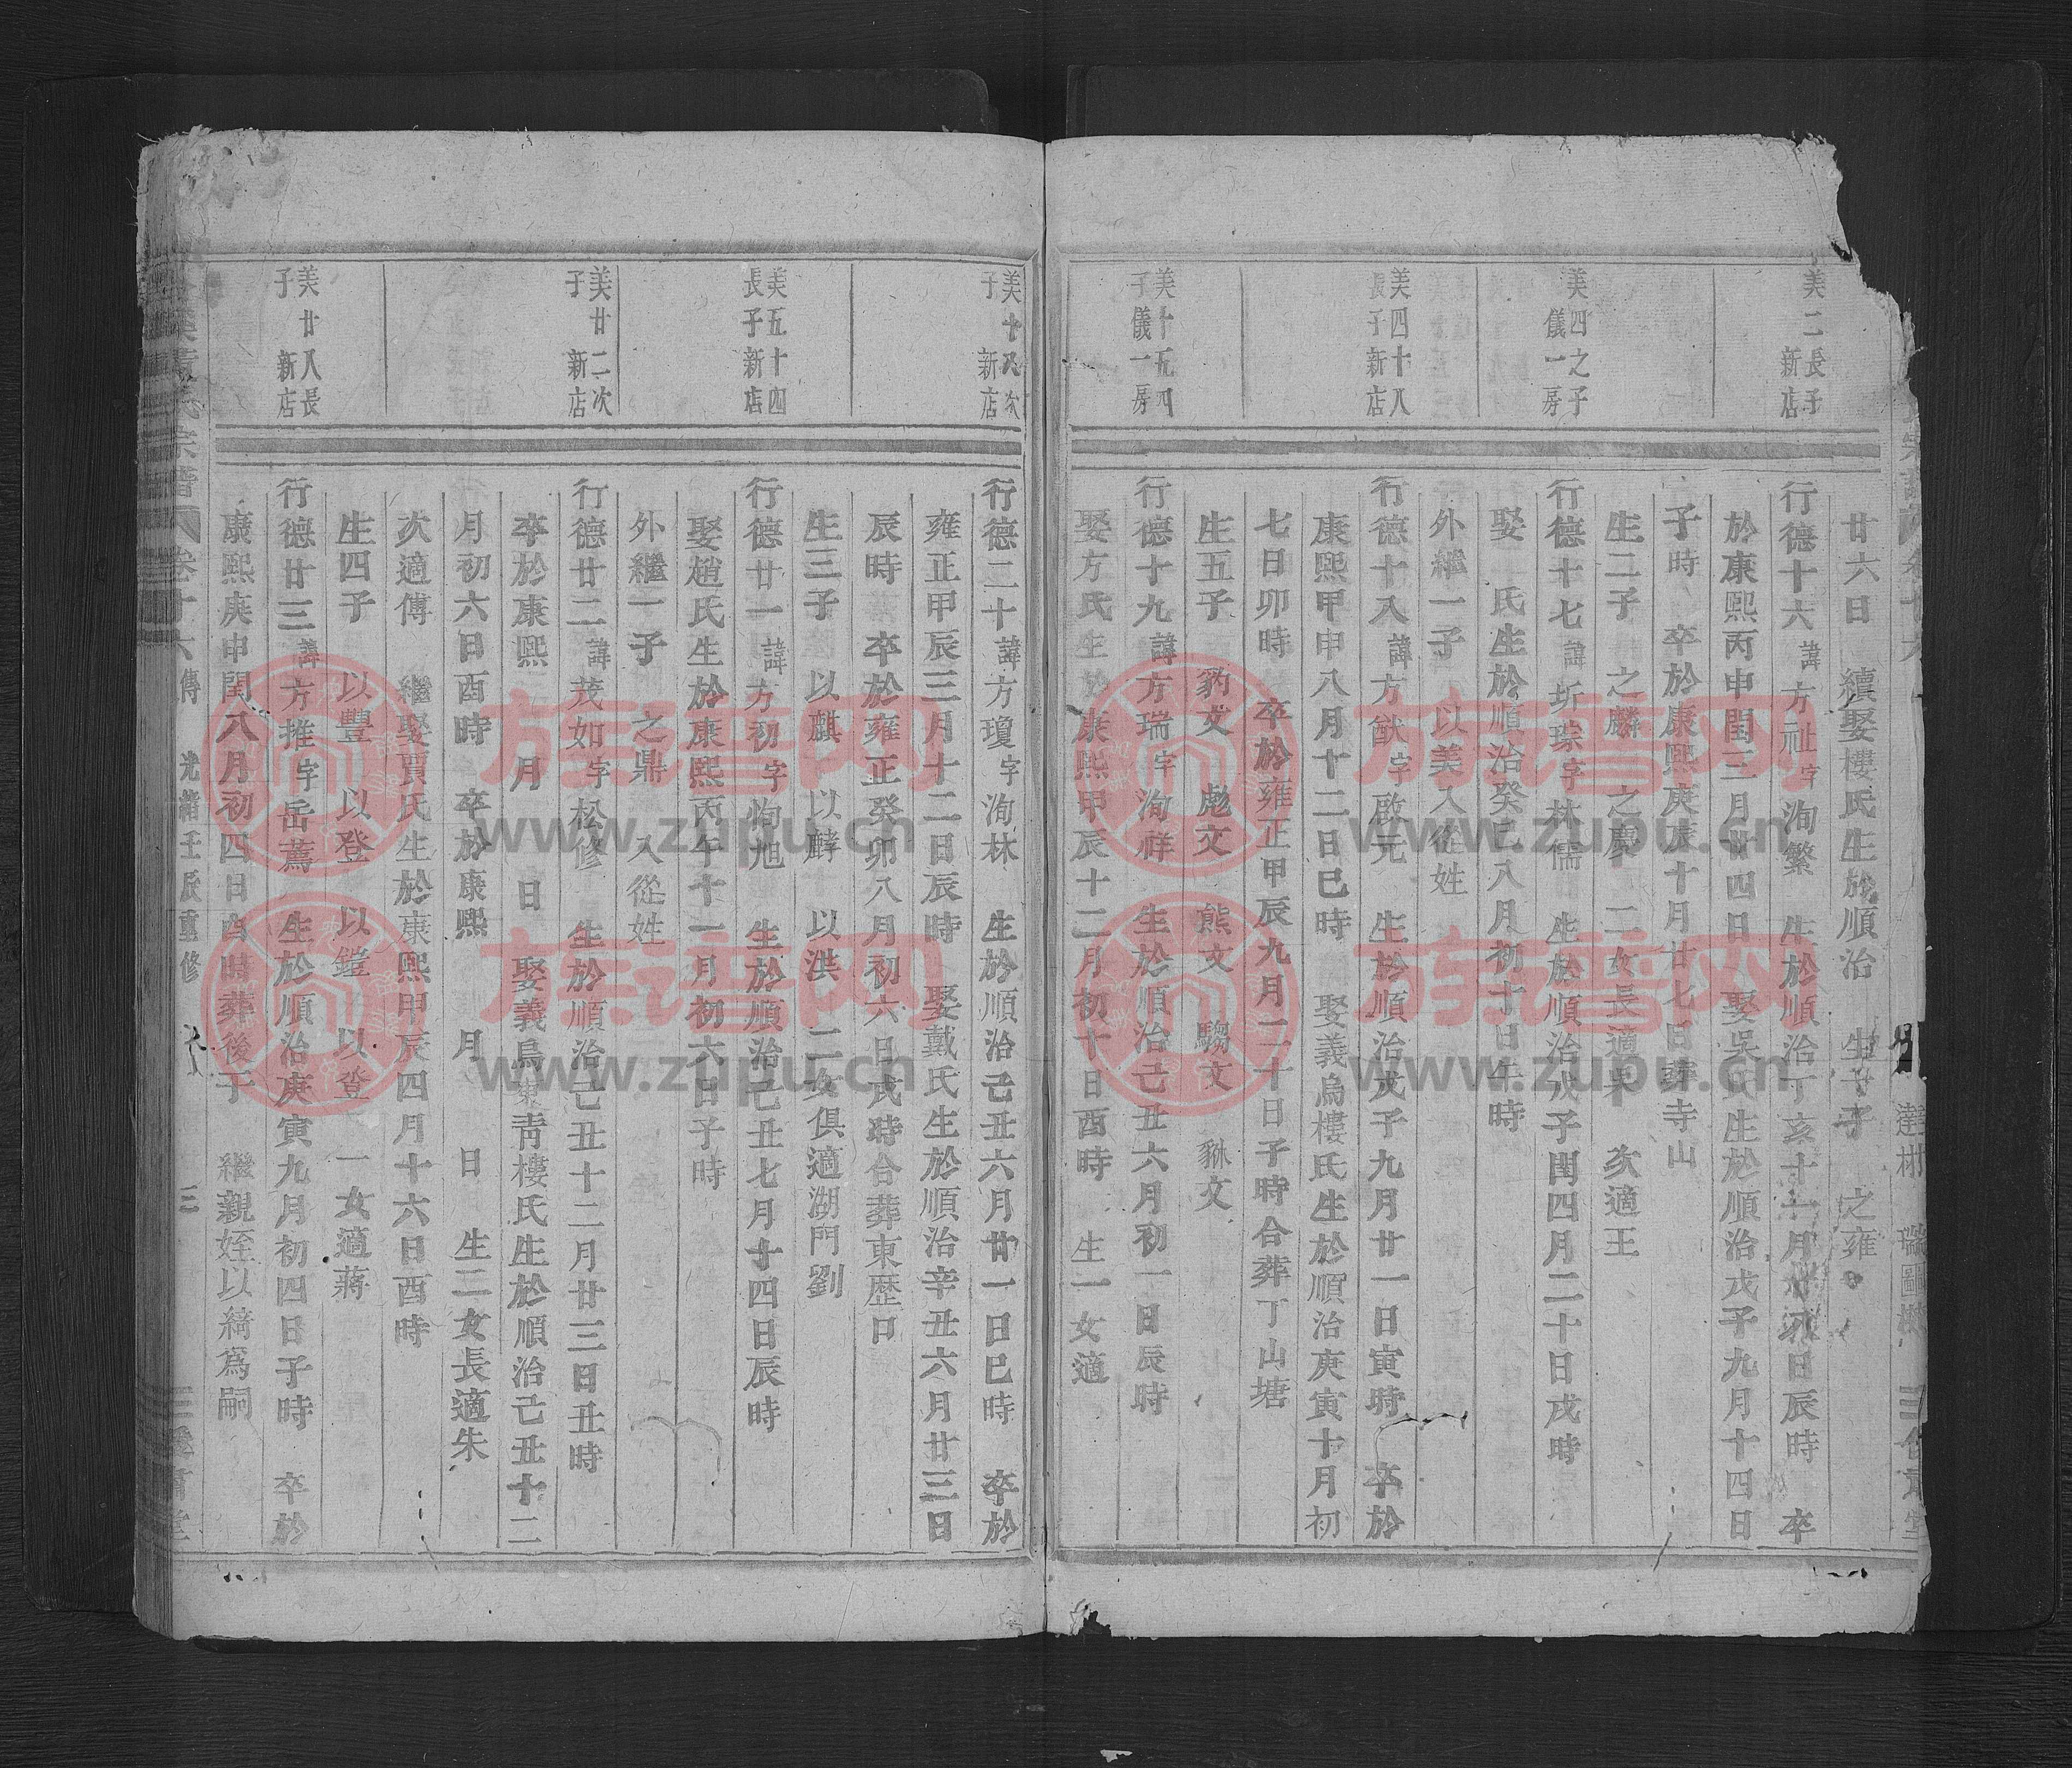 美二長子新店
美四之子儀一房
美四十八長子新店
美十五四子儀一房
廿六日 續娶樓氏生於順治 生一子 之雍
行德十六諱方祉字洵繁 生於順治丁亥十一月 日辰時 卒
於康熙丙申閏三月廿四日 娶吳氏生於順治戊子九月十四日
子時 卒於康熙庚辰十月廿七日葬寺山
生二子 之麟 之慶 二女長適吳 次適王
行德十七諱圻琮字林儒 生於順治戊子閏四月二十日戌時
娶 氏生於順治癸巳八月初十日午時
外繼一子 以美入從姓
行德十八諱方猷字啟元 生於順治戊子九月廿一日寅時 卒於
康熙甲申八月十二日巳時 娶義烏樓氏生於順治庚寅十月初
七日卯時 卒於雍正甲辰九月二十日子時合葬丁山塘
生五子 豹文 彪文 熊文 騶文 貅文
行德十九諱方瑞字洵祥 生於順治己丑六月初一日辰時
娶方氏生於康熙甲辰十二月初十日酉時 生一女適
美十八次子新店
美五十四長子新店
美廿二次子新店
美廿八長子新店
行德二十諱方瓊字洵林 生於順治己丑六月廿一日巳時 卒於
雍正甲辰三月十二日辰時 娶戴氏生於順治辛丑六月廿三日
辰時 卒於雍正癸卯八月初六日戌時合葬東歷口
生三子 以麒 以麟 以洪 二女俱適湖門劉
行德廿一諱方初字恂旭 生於順治己丑七月十四日辰時
娶趙氏生於康熙丙午十一月初六日子時
外繼一子 之鼎 入從姓
行德廿二諱茂如字松修 生於順治己丑十二月廿三日丑時
卒於康熙 月 日 娶義烏東靑樓氏生於順治己丑十二
月初六日酉時 卒於康熙 月 日 生二女長適朱
次適傅 繼娶賈氏生於康熙甲辰四月十六日酉時
生四子 以豐 以登 以鎧 以登 一女適蔣
行德廿三諱方推字岳薦 生於順治庚寅九月初四日子時 卒於
康熙庚申閏八月初四日酉時葬後于 繼親姪以綺爲嗣
宗譜 卷十六 傳 光緒壬辰重修 三
族譜网
www.zupu.cn
族譜网
www.zupu.cn
族譜网
www.zupu.cn
族譜网
www.zupu.cn